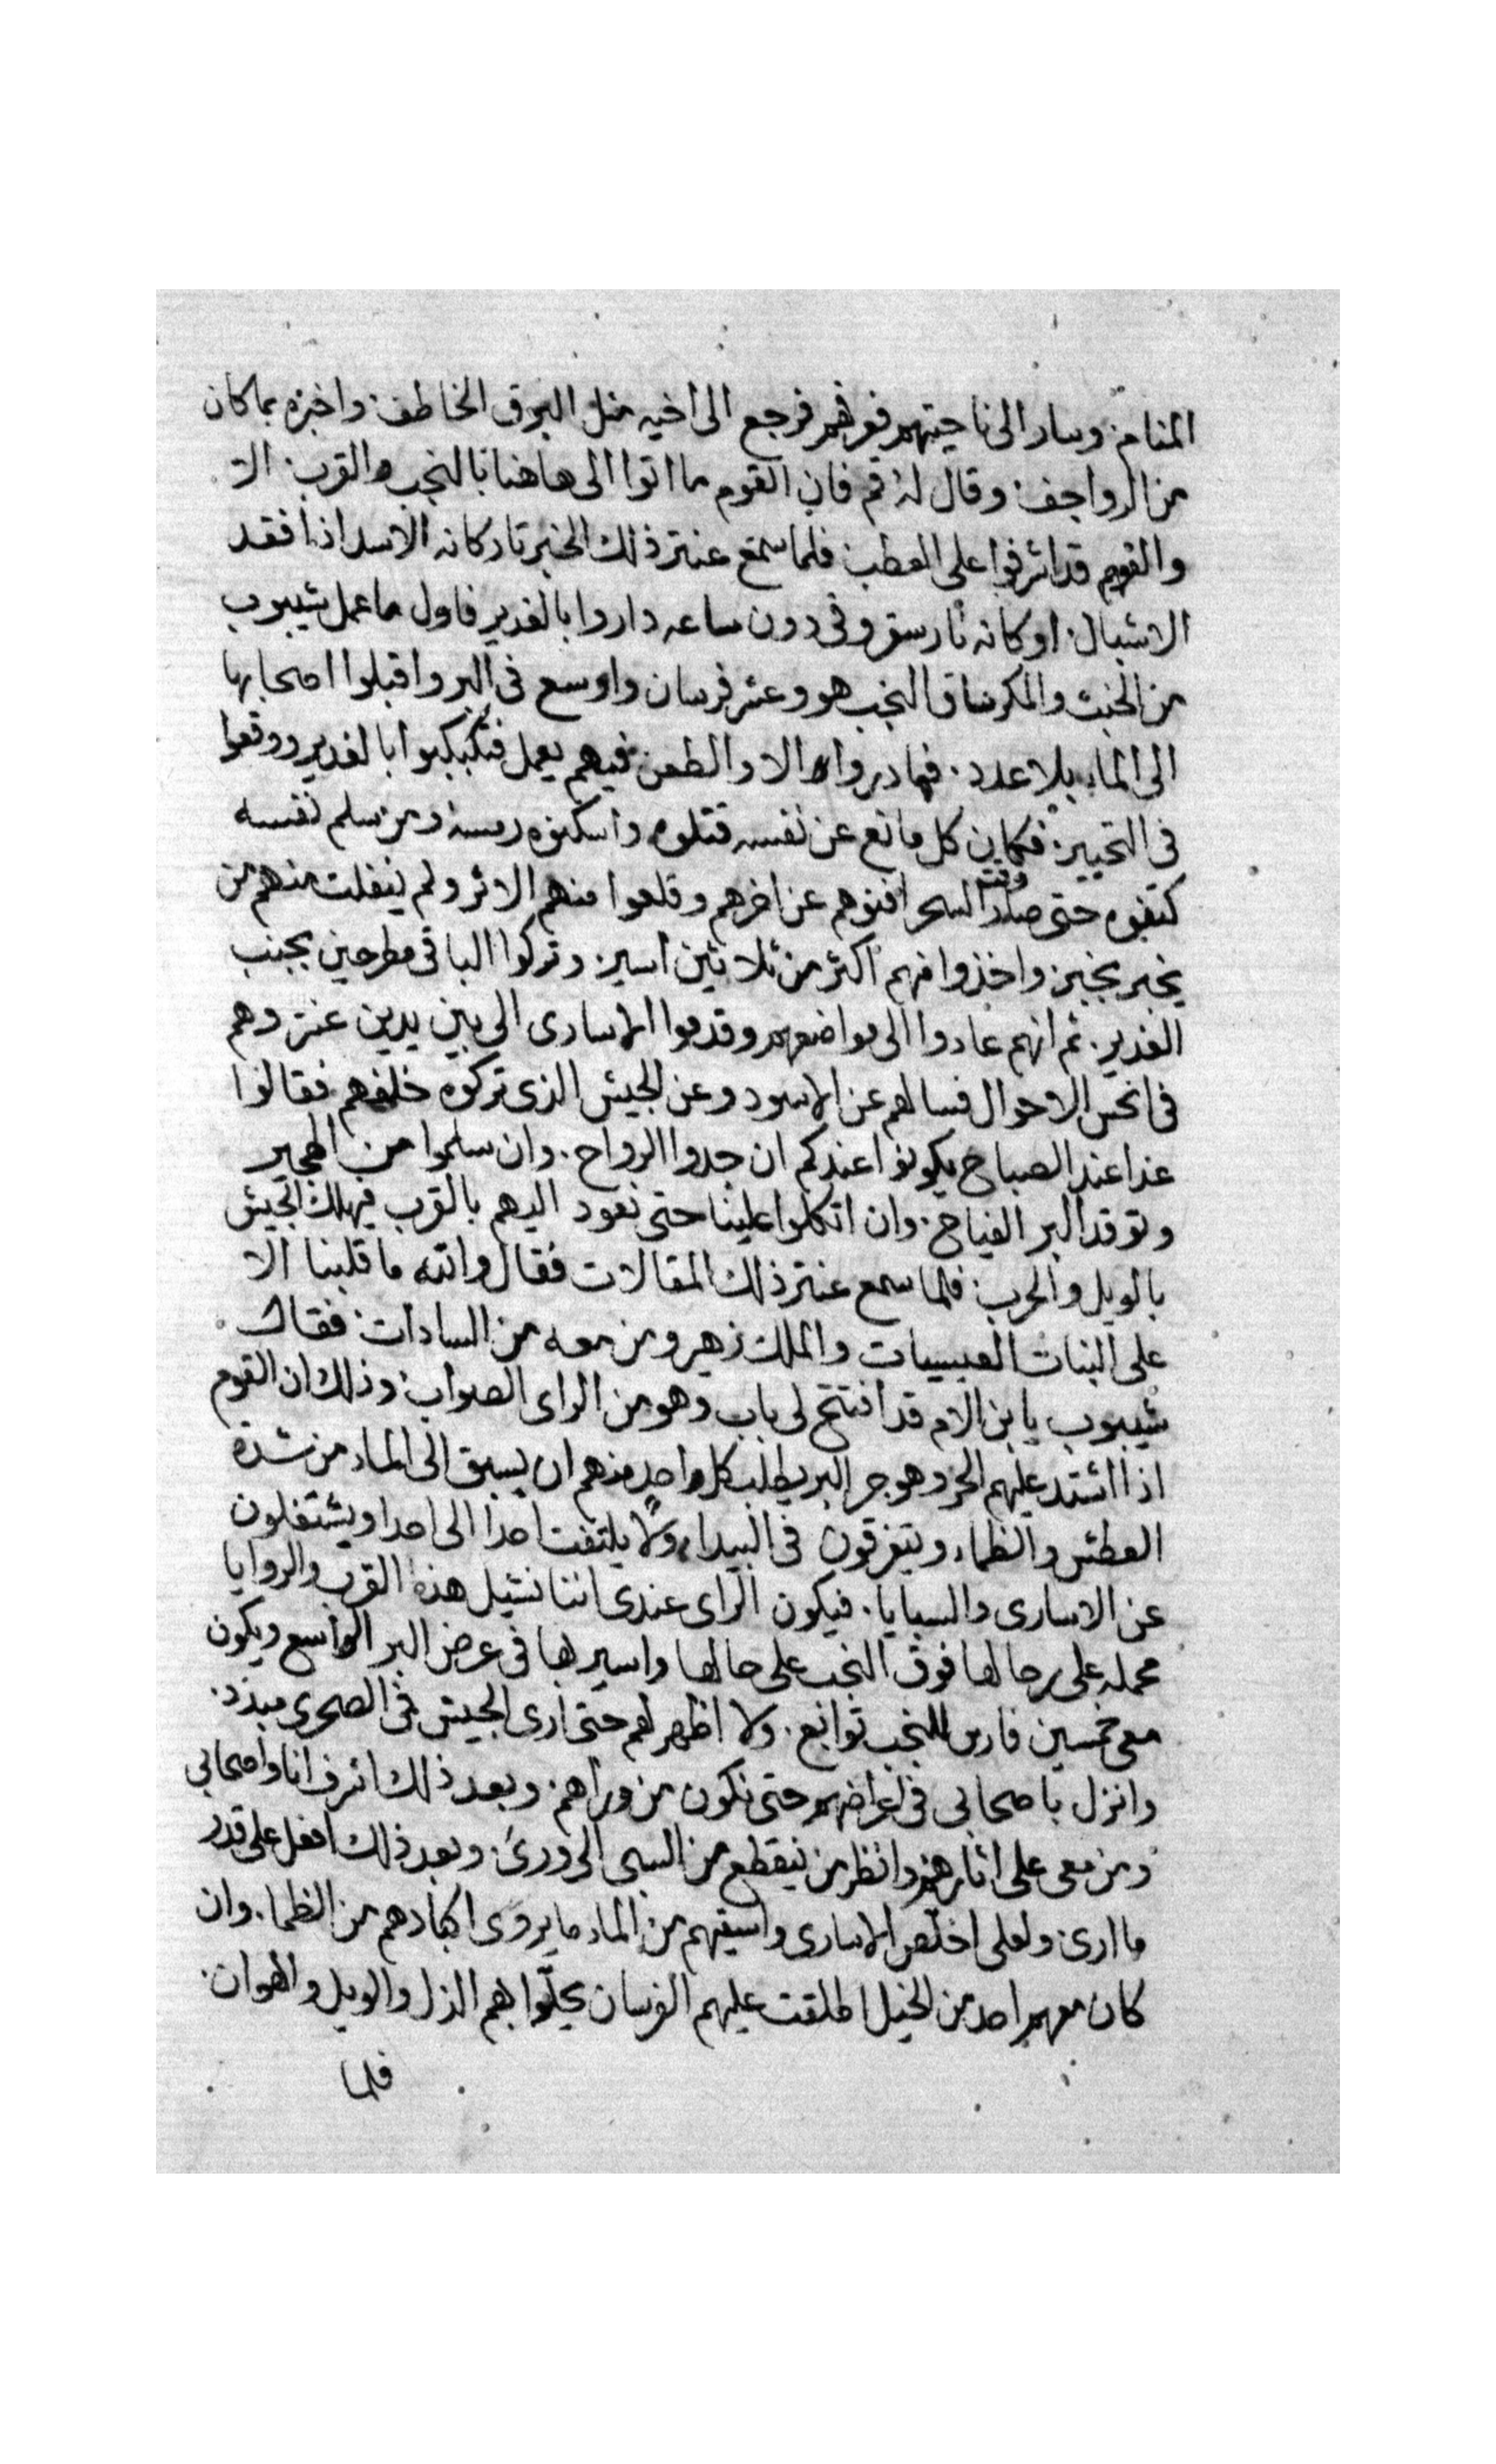 المنام وسار الى ناحيتهم فعرفهم فرجع الى اخيه مثل البرق الخاطف واخبره بما كان
من الرواجف وقال له قم فان القوم ما اتوا الى هاهنا بالنجب والقرب الا
والقوم قد اشرفوا على العطب فلما سمع عنتر ذلك الخبر ثار كانه الاسد اذا فقد
الاشبال او كانه نار سقر وفى دون ساعه داروا بالغدير فاول ما عمل شيبوب
من الخبث والمكر ساق النجب هو وعشر فرسان واوسع فى البر واقبلوا اصحابها
الى الماء بلا عدد فما دروا الا والطعن فيهم يعمل فتكبكبوا بالغدير ووقعوا
فى التحيير فكان كل مانع عن نفسه قتلوه واسكنوه رمسه ومن سلم نفسه
كتفوه حتى صار وقت السحر افنوهم عن اخرهم وقلعوا منهم الاثر ولم ينفلت منهم من
يخبر بخبر واخذوا منهم اكثر من ثلاثين اسير وتركوا الباقى مطرحين بجنب
الغدير ثم انهم عادوا الى مواضعهم وقدموا الاسارى الى بين يدين عنتر وهم
فى انحس الاحوال فسالهم عن الاسود وعن الجيش الذى تركوه خلفهم فقالوا
غدا عند الصباح يكونوا عندكم ان جدوا الرواح وان سلموا من الهجير
وتوقد البر الفياح وان اتكلوا علينا حتى نعود اليهم بالقرب فيهلك الجيش
بالويل والحرب فلما سمع عنتر ذلك المقالات فقال والله ما قلبنا الا
على البنات العبسيات والملك زهير ومن معه من السادات فقال
شيبوب يا بن الام قد افتتح لى باب وهو من الراى الصواب وذلك ان القوم
اذا اشتد عليهم الحر وهوجر البر يطلب كل واحد منهم ان يسبق الى الماء من شدة
العطش والظماء ويتفرقون فى البيداء ولا يلتفت احدا الى احدا ويشتغلون
عن الاسارى والسبايا فيكون الراى عندى اننا نشيل هذه القرب والروايا
محمله على رحالها فوق النجب على حالها واسير بها فى عرض البر الواسع ويكون
معى خمسين فارس للنجب توابع ولا اظهر لهم حتى ارى الجيش فى الصحرى مبدد
وانزل باصحابى فى اعراضهم حتى نكون من وراهم وبعد ذلك اشرف انا واصحابى
ومن معى على اثارهم وانظر من ينقطع من السبى الى ورى وبعد ذلك افعل على قدر
ما ارى ولعلى اخلص الاسارى واسقيهم من الماء ما يروى اكبادهم من الظما وان
كان معهم احد من الخيل اطلقت عليهم الفرسان يحلوا بهم الذل والويل والهوان
فلما